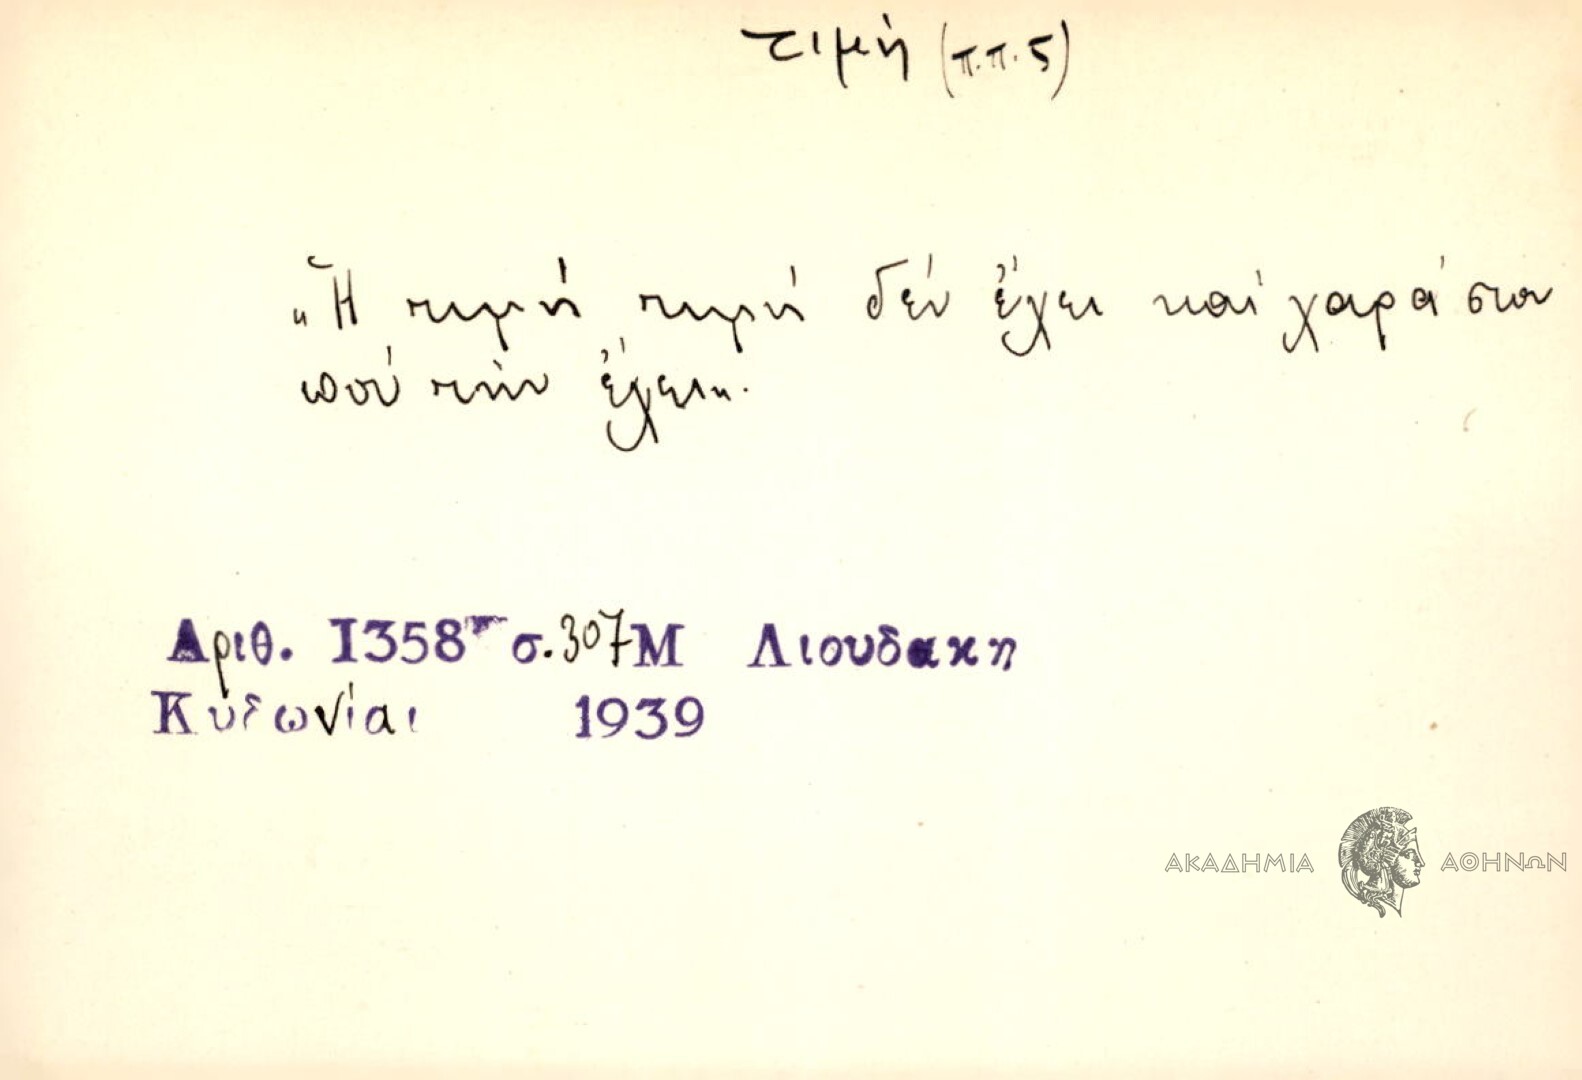 τιμή (π.π. 5)
"Ἡ τιμή τιμή δέν ἔχει καί χαρά στον
πού τήν ἔχει".
Αριθ. 1358 σ. 307 Μ Λιουδακη
Κυδωνίαι 1939
ΑΚΑΔΗΜΙΑ ΑΘΗΝΩΝ